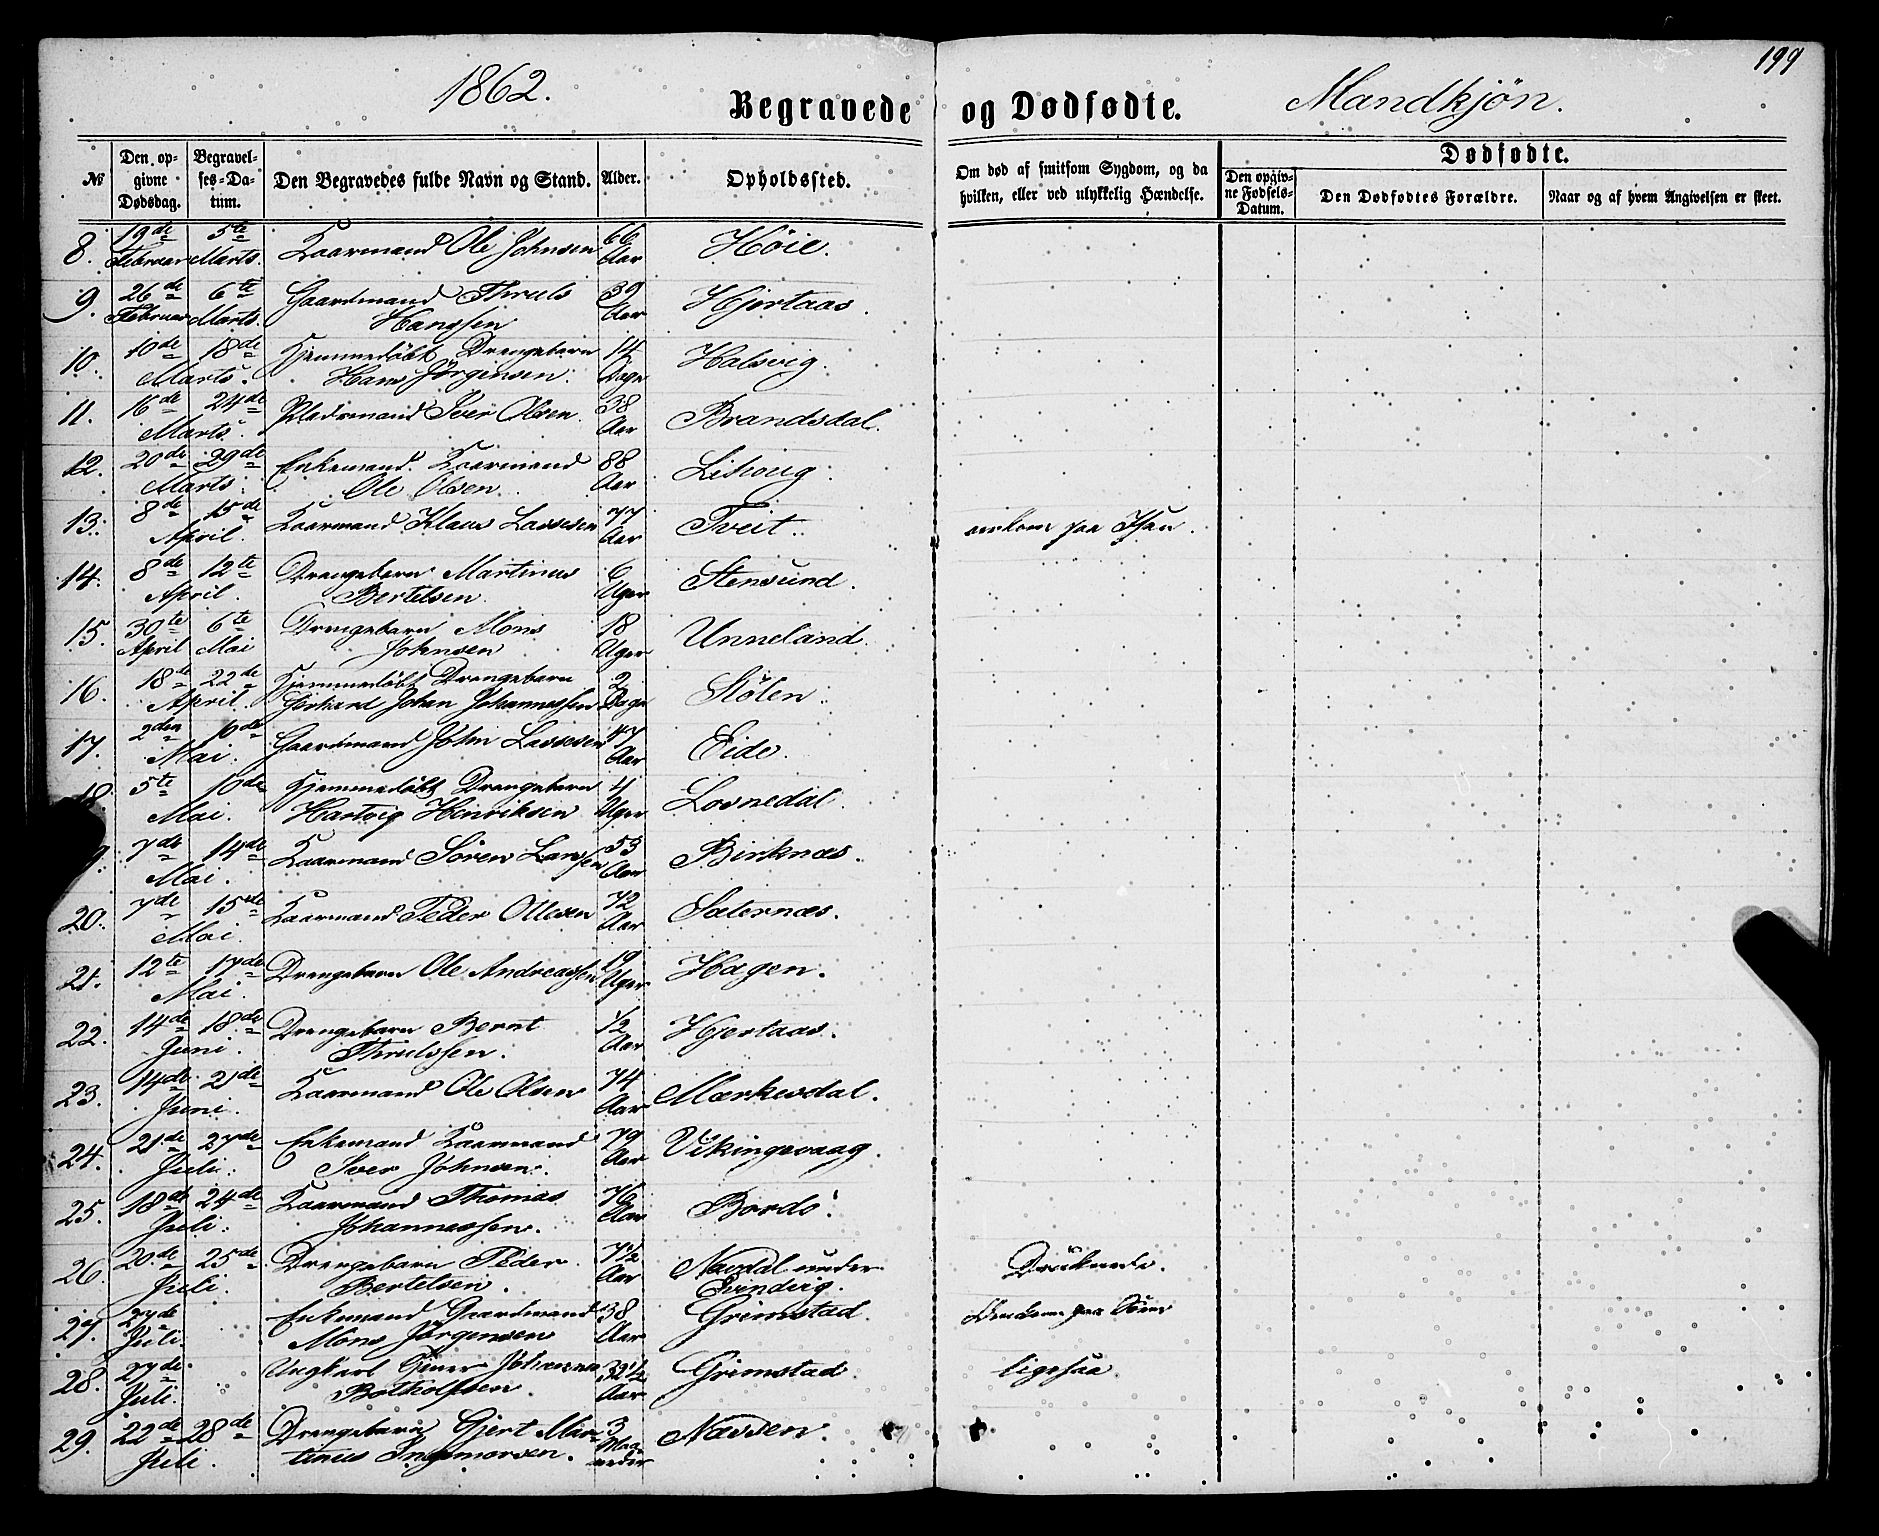 199
1862.
Begravede og Dødfødte.
Mandkjön.
№
Den opgivne Dødsdag.
Begravelses-Datum.
Den Begravedes fulde Navn og Stand.
Alder.
Opholdssted.
Om død af smitsom Sygdom, og da hvilken, eller ved ulykkelig Hændelse.
Dødfødte.
Den opgivne Fødsels-Datum.
Den Dødfødtes Forældre.
Naar og af hvem Angivelsen er skeet.
8. 19de Februar 5te Marts. Kaarmand Ole Johnsen 66 Aar Höie.
9. 26de Februar 6te Marts. Gaardmand Thruls Hanssen 39 Aar Hjertaas.
10. 10de 18de Marts. Hjemmedöbt Drengebarn Hans Jörgensen. 14 Dage Halsvig.
11. 16de 24de Marts. Pladsmand Iver Olsen. 38 Aar Brandsdal.
12. 20de 29de Marts. Enkemand Kaarmand Ole Olsen. 88 Aar
13. 8de 15de April. Kaarmand Klaus Lassesen 77 Aar Tveit. omkom paa
14. 8de 12te April. Drengebarn Martinus Bertelsen. 6 Uger Stensund.
15. 30te April 6te Mai Drengebarn Mons Johnsen 18 Uger Unneland.
16. 18de 22de April. Hjemmedöbt Drengebarn Gerhard Johan Johannessen 2 Dage Stölen.
17. 2den 10de Mai. Gaardmand John Lassesen 47 Aar Eide.
18 5te 10de Mai. Hjemmedöbt Drengebarn Hartvig Hinriksen 4 Uger
9. 7de 14de Mai. Kaarmand Sören Larssen 53 Aar Birknæs.
20. 7de 15de Mai. Kaarmand Peder Ottesen 72 Aar Sæternæs.
21. 12te 17de Mai. Drengebarn Ole Andreassen 19 Uger Hagen.
22. 14de 18de Juni. Drengebarn Bernt Thrulssen. 1/2 Aar Hjertaas.
23. 14de 21de Juni. Kaarmand Ole Olsen 74 Aar Mærkesdal.
24. 21de 27de Juli. Enkemand Kaarmand Iver Johnsen. 79 Aar Vikingevaag.
25. 18de 24de Juli. Kaarmand Thomas Johannessen. 76 Aar Bordö.
26. 20de 25de Juli. Drengebarn Peder Bertelsen. 7 1/2 Aar Navdal under Eivindvig. Druknede.
27. 27de Juli. Enkemand Gaardmand Mons Jörgensen 38 Aar Grimstad. Omkom paa Söen
28. 27de Juli. Ungkarl Johannes Botholfsen. 32 1/2 Aar Grimstad. ligesaa.
29. 22de 28de Juli. Drengebarn Gjert Martinus Ingemorsen. 3 Maaneder Nævsen.